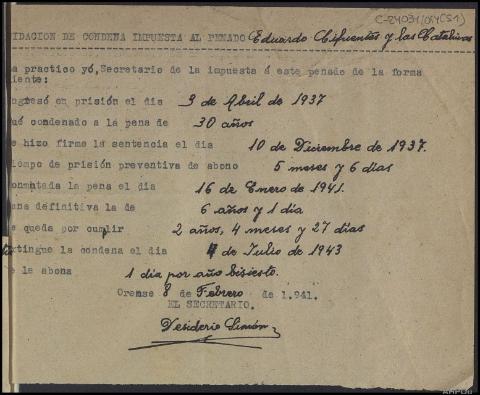 C-24031/054(S1)
IDACION DE CONDENA IMPUESTA AL PENADO Eduardo Cifuentes y las Catalinas
a practico yó,Secretario de la impuesta á este penado de la forma
iente:
ngresó en prisión el dia 3 de Abril de 1937
ué condenado a la pena de 30 años
e hizo firme la sentencia el dia 10 de Diciembre de 1937.
iempo de prisión preventiva de abono 5 meses y 6 dias
onmutada la pena el dia 16 de Enero de 1941.
ena definitiva la de 6 años y 1 dia
e queda por cumplir 2 años, 4 meses y 27 dias
xtingue la condena el dia 4 de Julio de 1943
e le abona 1 dia por año bisiesto.
Orense 8 de Febrero de 1.941.
EL SECRETARIO.
Desiderio Simón